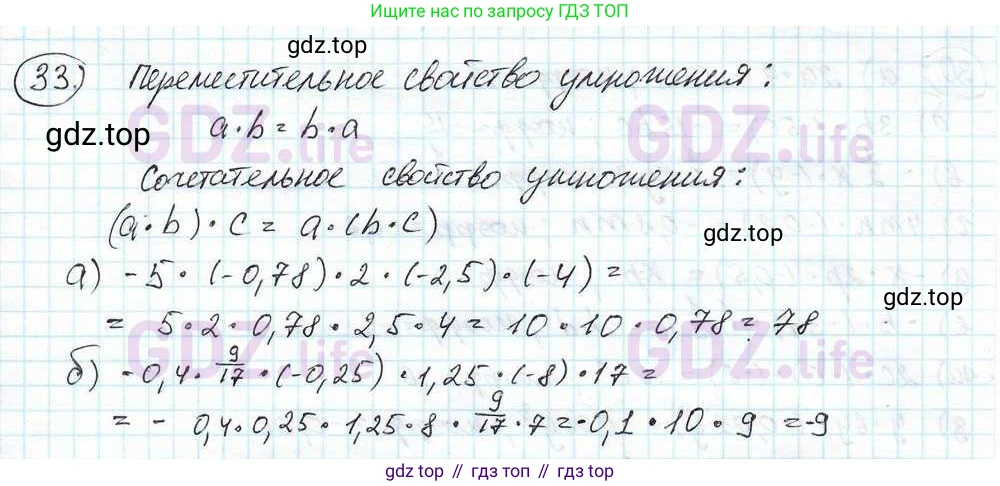 Ищите нас по запросу ГДЗ ТОП
gdz.top
33. Переместительное свойство умножения:
gdz.top
a·b = b·a
GDZ.life GDZ.life
Сочетательное свойство умножения:
(a·b)·c = a·(b·c)
gdz.top
а) -5·(-0,78)·2·(-2,5)·(-4) =
gdz.top
= 5·2·0,78·2,5·4 = 10·10·0,78 = 78
GDZ.life GDZ.life
б) -0,4·9/17·(-0,25)·1,25·(-8)·17 =
= - 0,4·0,25·1,25·8·9/17·7 = -0,1·10·9 = -9
gdz.top // гдз топ // gdz top